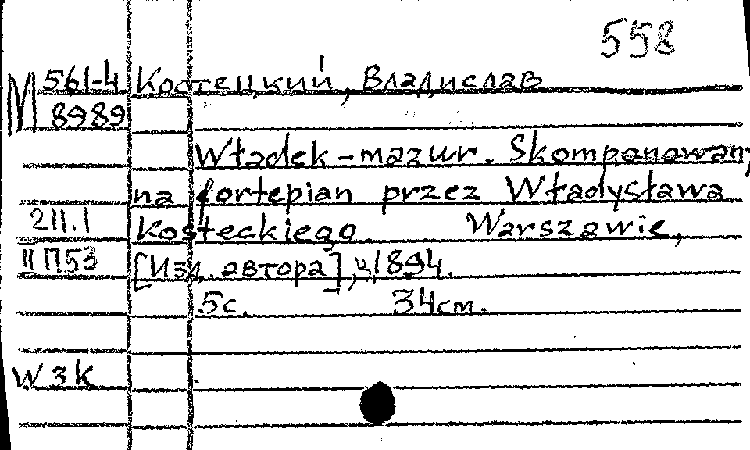 558
М 561-4 Костецкий, Владислав
8989
Władek - mazur. Skomponowany
na fortepian przez Władysława
211.1 Kosteckiego. Warszawie,
II П53 [Изд. автора], 1894.
5с. 34см.
W 3K